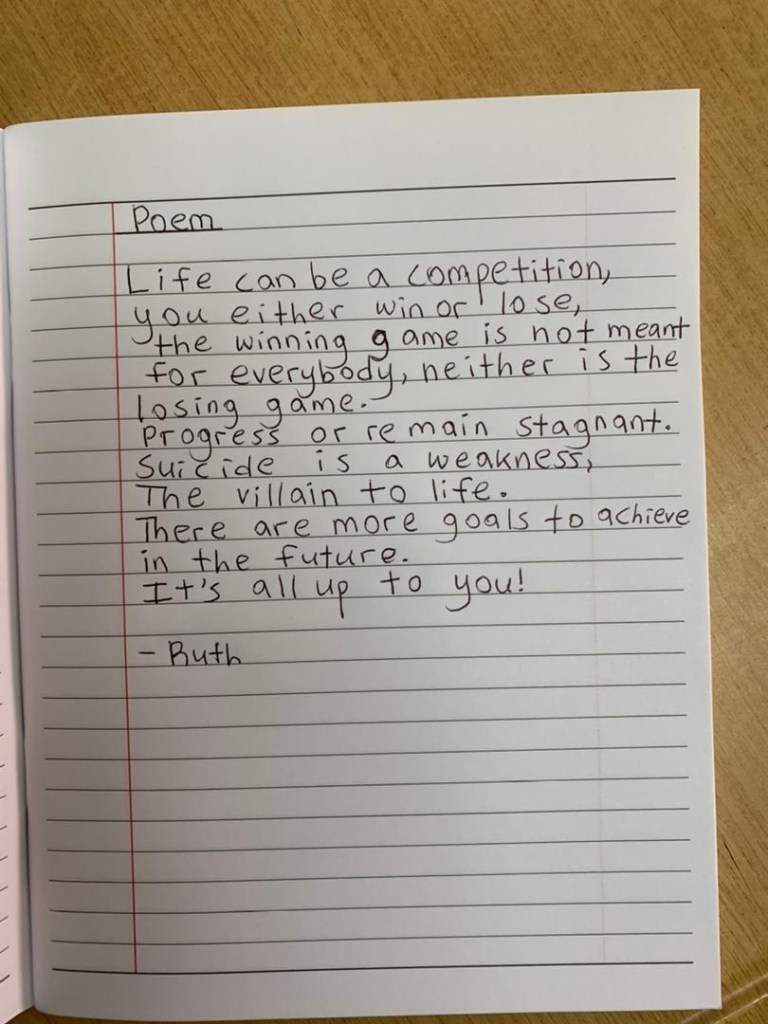 Poem
Life can be a competition,
you either win or lose,
the winning game is not meant
for everybody, neither is the
losing game.
Progress or remain stagnant.
Suicide is a weakness,
The villain to life.
There are more goals to achieve
in the future.
It's all up to you!
- Ruth